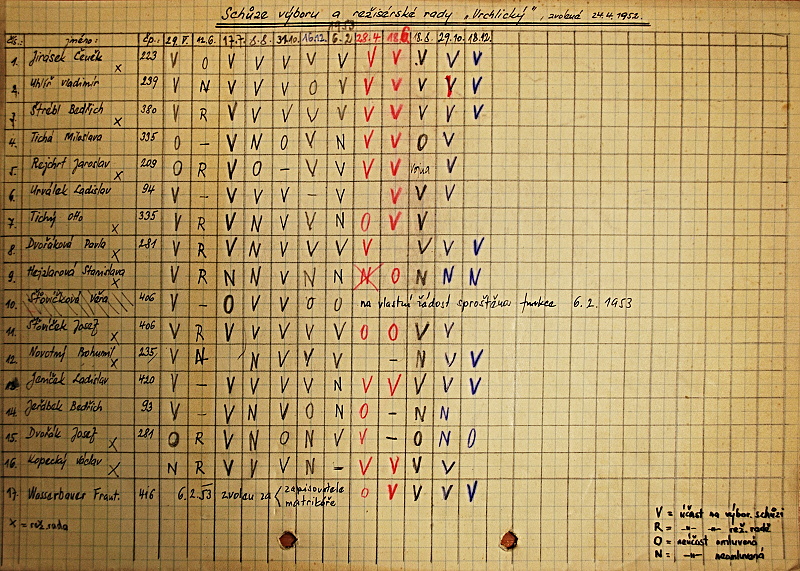 Schůze výboru a režisérské rady „Vrchlický", zvolená 24.4.1952.
1953
čís. jméno: čp.: 29.V. 12.6. 17.7. 8.8. 31.10. 16.12. 6.2. 28.4. 18.6. 18.8. 29.10. 18.12.
1. Jirásek Čeněk x 223 V O V V V V V V V V V V
2. Uhlíř Vladimír 239 V N V V V O V V V V V V
3. Štrébl Bedřich x 380 V R V V V V V V V V V V
4. Tichá Miloslava 335 O – V N O V N V V O V
5. Rejchrt Jaroslav x 209 O R V O – V V V V V
6. Urválek Ladislav 94 V – V V V – V V V V
7. Tichý Otto x 335 V R V N V V N O V V
8. Dvořáková Pavla x 281 V R V N V V V V V V V
9. Hejzlarová Stanislava x V R N N V N N N O N N N
10. Šťovíčková Věra 406 V – O V V O O na vlastní žádost sproštěna funkce 6.2.1953
11. Šťovíček Josef x 406 V R V V V V V O O V V
12. Novotný Bohumil x 235 V N N V V V – N V V
Jemček Ladislav 420 V – V V V V N V V V V V
14. Jeřábek Bedřich 93 V – V N V O N O – N N
15. Dvořák Josef x 281 O R V N O N V V – O N O
16. Kopecký Václav x N R V V V N – V V V V
17. Wasserbauer Frant. 416 6.2.53 zvolen za zapisovatele O V V V V
matrikáře
x = rež. rada
V = účast na výbor. schůzi
R = –"– –"– rež. radě
O = neúčast omluvená
N = –"– neomluvená